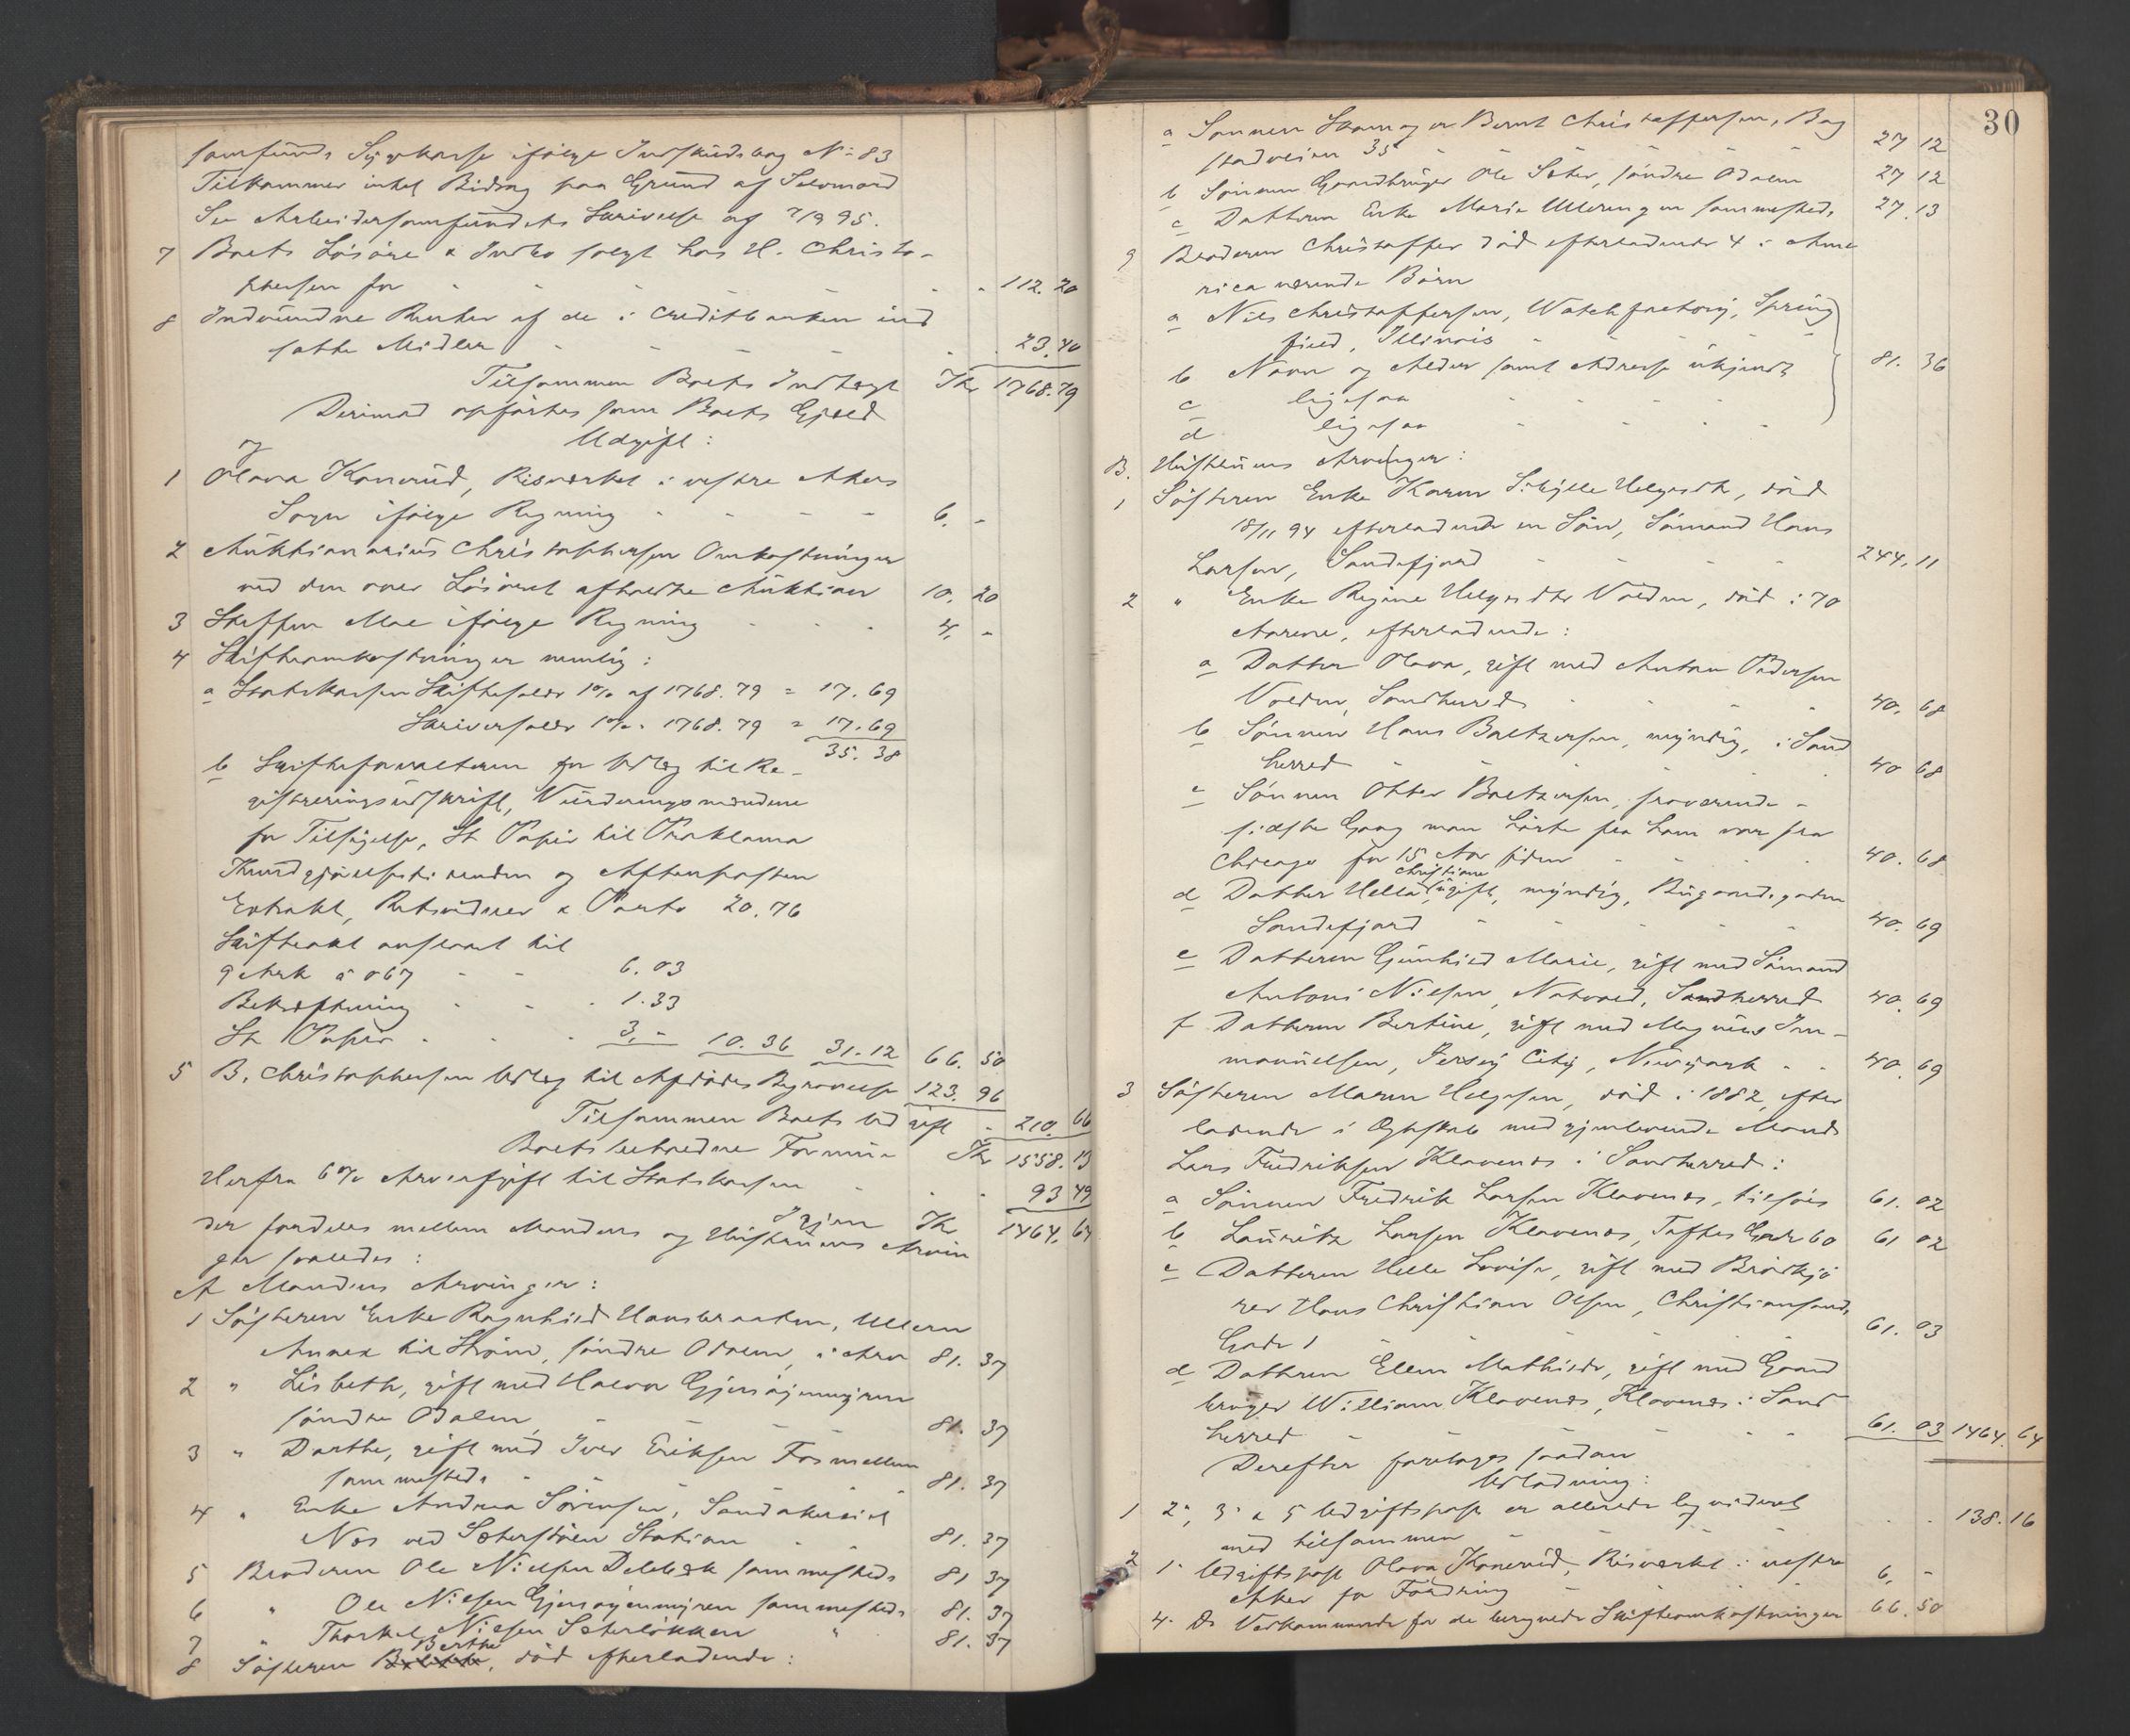 samfunds Sygekasse ifølge Indskudsbog No 83
Tilkommer intet Bidrag paa Grund af Selvmord
Se Arbeidersamfundets Skrivelse af 7/9 95.
7 Boets Løsøre & Indbo solgt hos H. Christo-
phersen for - - - - 112.20
8 Indvundne Renter af de i Creditbanken ind
satte Midler - - - - 23.40
Tilsammen Boets Indtægt Kr 1768.79
Derimod opførtes som Boets Gjæld
og Udgift:
1 Olava Konerud, Risværket i vestre Akers
Sogn ifølge Regning - - - - 6. -
2 Auktionarius Christophersen Omkostninger
ved den over Løsøret afholdte Auktion 10. 20
3 Steffen Moe ifølge Regning - - - 4. -
4 Skifteomkostninger nemlig:
a Statskassen Skiftesalær 1% af 1768.79 = 17.69
Skriversalær 1% " 1768.79 = 17.69
35.38
b Skifteforvalteren for Udlæg til Re-
gistreringsudskrift, Vurderingsmændene
for Tilsigelse, St Papir til Proklama
Kundgjørelsestidenden og Aftenposten
Extrakt, Retsvidner & Porto 20.76
Skifteakt anslaaet til
9 Ark á 067 - - 6.03
Bekræftning - - - 1.33
St Papir - - - 3. - 10.36 31.12 66.50
5 B. Christophersen Udlæg til Afdødes Begravelse 123.96
Tilsammen Boets Udgift - 210.66
Boets beholdne Formue Kr 1558.13
Herfra 6% Arveafgift til Statskassen - - - 93 49
Igjen Kr 1464.64
der fordeles mellem Mandens og Hustruens Arvin
ger saaledes:
A Mandens Arvinger:
1 Søsteren Enke Ragnhild Hansbraaten, Ullern
Annex til Strøm, søndre Odalen, i Arv 81. 37
2 " Lisbeth, gift med Halvor Gjersøyenmyren
søndre Odalen - - - 81. 37
3 " Dorthe, gift med Iver Eriksen Fosmellum
sammesteds - - - 81. 37
4 " Enke Andrea Sørensen,
Nes ved Sæterstøen Station - - 81. 37
5 Broderen Ole Nielsen Delebæk sammesteds 81 37
6 " Ole Nielsen Gjersøyenmyren sammesteds 81. 37
7 " Thorkel Nielsen Sæterløkken " 81. 37
8 Søsteren Berthe, død efterladende:
30
a Sønnen Skomager Bernt Christoffersen, Bog
stadveien 35 - - - - 27 12
b Sønnen Gaardbruger Ole Sæter, søndre Odalen 27 12
c Datteren Enke Marie Ulleringen sammesteds 27.13
9 Broderen Christoffer død efterladende 4 i Ame
rica værende Børn
a Nils Christoffersen, Watch factory, Spring
field, Illinois - - -
b Navn og Alder samt Adresse ukjendt 81. 36
c ligesaa - - - -
d ligesaa - - - -
B. Hustruens Arvinger:
1 Søsteren Enke Karen Sibylle Helgesdtr, død
18/11 94 efterladende en Søn, Sømand Hans
Larsen, Sandefjord - - - 244. 11
2 " Enke Regine Helgesdtr Volden, død i 70
Aarene, efterladende:
a Datter Olava, gift med Anton Pedersen
Volden, Sandherred - - - 40. 68
b Sønnen Hans Baltzersen, myndig, i Sand
herred - - - - 40 68
c Sønnen Otter Baltzersen, fraværende -
sidste Gang man hørte fra ham var fra
Chicago for 15 Aar siden - - - 40. 68
d Datter Helle Christiane, ugift, myndig, Bugaardsgaden
Sandefjord - - - - 40. 69
e Datteren Gunhild Marie, gift med Sømand
Antoni Nilsen, Natvall, Sandherred 40. 69
f Datteren Bertine, gift med Magnus Im-
manuelsen, Jersey City, Newyork - - 40. 69
3 Søsteren Maren Helgesen, død i 1882, efter
ladende i Ægteskab med gjenlevende Mand
Lars Fredriksen Klavenæs i Sandherred:
a Sønnen Fredrik Larsen Klavenæs, tilsøes 61. 02
b Lauritz Larsen Klavenæs, Toftes Gade 60 61 02
c Datteren Helle Lovise, gift med Brødkjø
rer Hans Christian Olsen, Christiansunds
Gade 1 - - - - 61. 03
d Datteren Ellen Mathilde, gift med Gaard
bruger William Klavenæs, Klavenæs i Sand
herred - - - - 61. 03 1464. 64
Derefter foretages saadan
Udlodning:
1 2', 3' & 5 Udgiftspost er allerede liqvideret
med tilsammen - - - 138.16
2 1' Udgiftspost Olava Konerud, Risværket i vestre
Aker for Fordring - - - 6. -
4. Do Vedkommende for de beregnede Skifteomkostninger 66.50